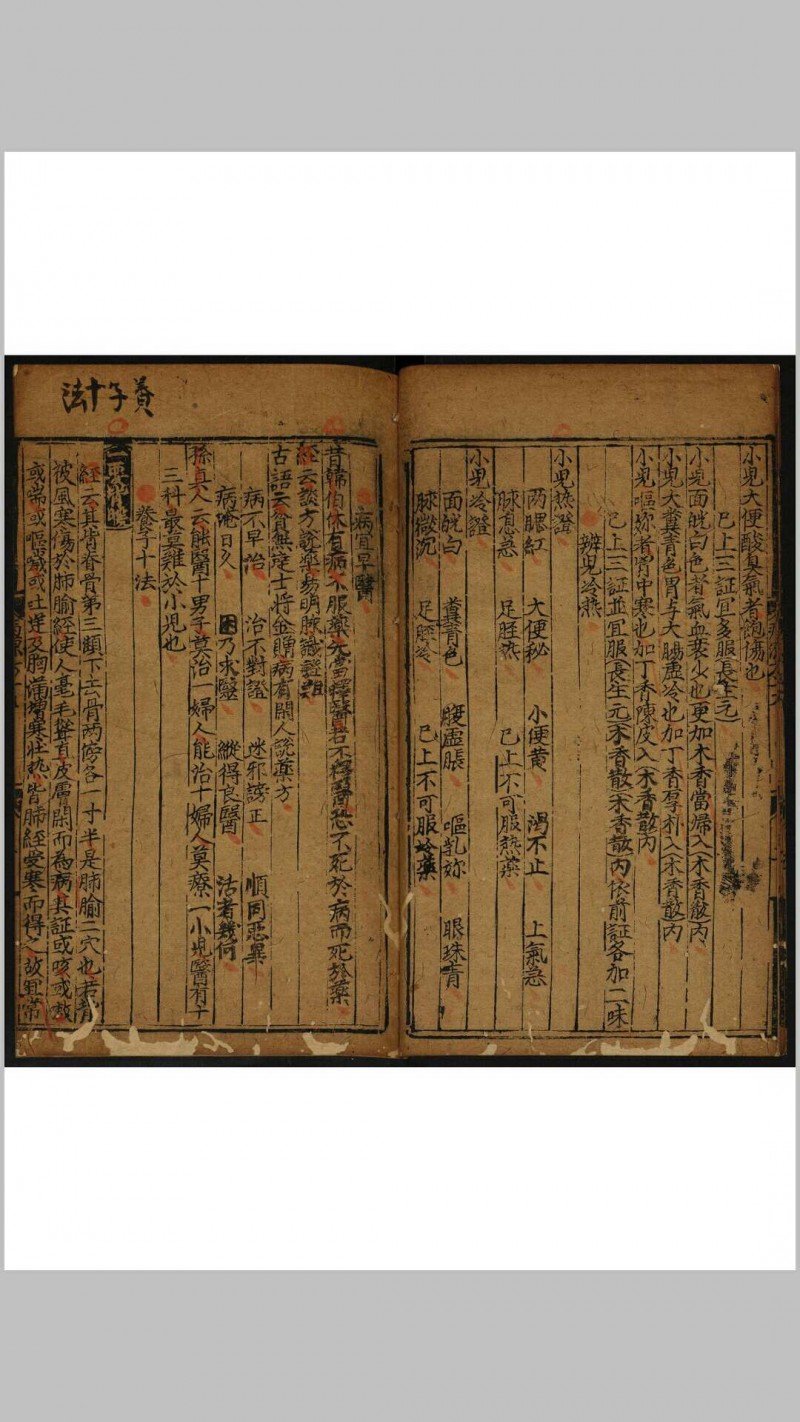 小児大便酸臭氣者飽傷也
已上三証宜多服長生元
小児面㿠白色者氣血衰少也更加木香當歸入木香散内
小児大糞青色胃与大腸虚冷也加丁香厚朴入木香散内
小児嘔妳者胃中寒也加丁香陳皮入木香散内
已上三証並宜服長生元木香散木香散内依前証各加二味
辨児冷熱
小児熱證
两腮紅 大便秘 小便黄 渴不止 上氣急
脉息急 足脛熱 已上不可服熱藥
小児冷證
面㿠白 糞青色 腹虚脹 嘔乳妳 眼珠青
脉微沉 足脛冷 已上不可服冷藥
養子十法
病宜早醫
昔韓伯休有病不服藥先當擇醫若不擇醫恐不死於病而死於藥
經云談方説藥易明脉識證難
古語云貧無達士將金贈病有閑人説藥方
病不早治 治不對證 迷邪謗正 順同惡羣
病淹日久 困乃求醫 縱得良醫 活者幾何
孫真人云能醫十男子莫治一婦人能治十婦人莫療一小児醫有十
三科最莫難於小児也
養子十法
一要背暖
經云其背脊骨第三顀下去骨两傍各一寸半是肺腧二穴也若背
被風寒傷於肺腧經使人毫毛聳直皮膚閉而為病其証或咳或嗽
或喘或嘔噦或吐逆及胸滿憎寒壮熱皆肺經受寒而得之故宜常